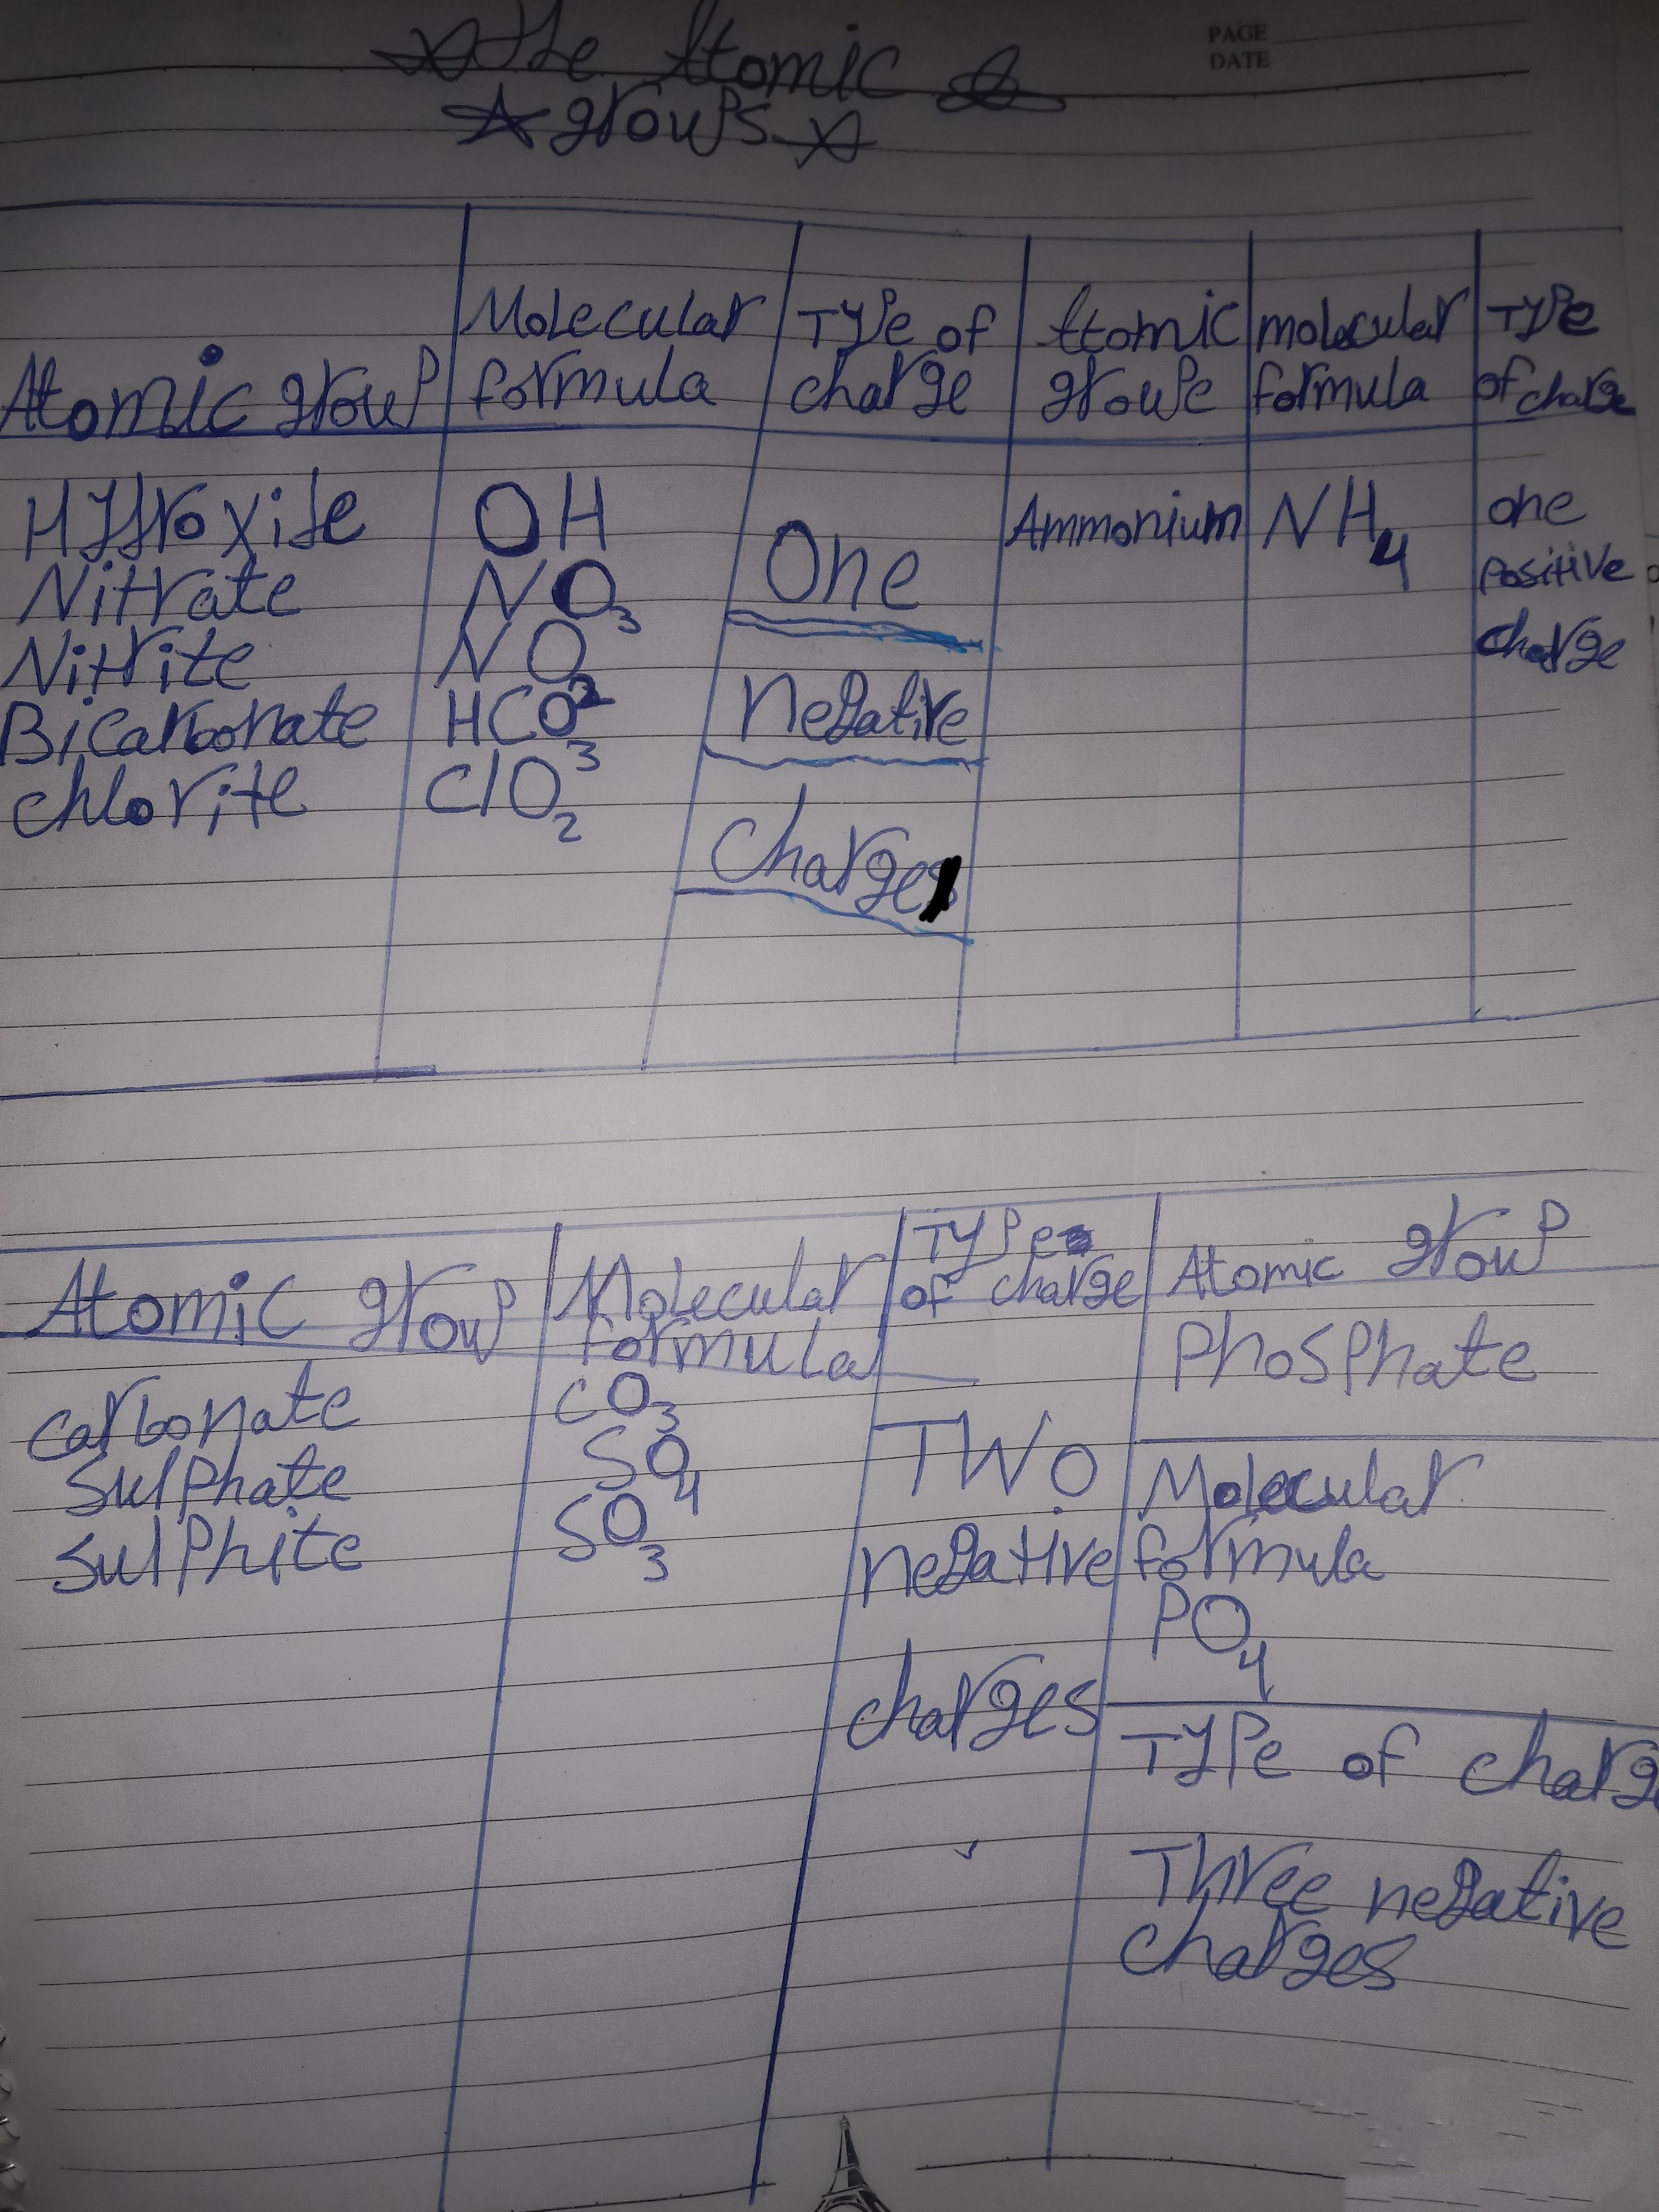 PAGE
DATE
The Atomic
groups
Atomic group
Molecular
formula
Type of
charge
Atomic
groupe
molecular
formula
Type
of charge
Hydroxide
Nitrate
Nitrite
Bicarbonate
chlorite
OH
NO3
NO2
HCO3
ClO2
One
negative
Charge
Ammonium
NH4
one
positive
charge
Atomic group
Molecular
formula
Type
of charge
carbonate
sulphate
sulphite
CO3
SO4
SO3
TWO
negative
charges
Atomic group
Phosphate
Molecular
formula
PO4
Type of charge
Three negative
charges